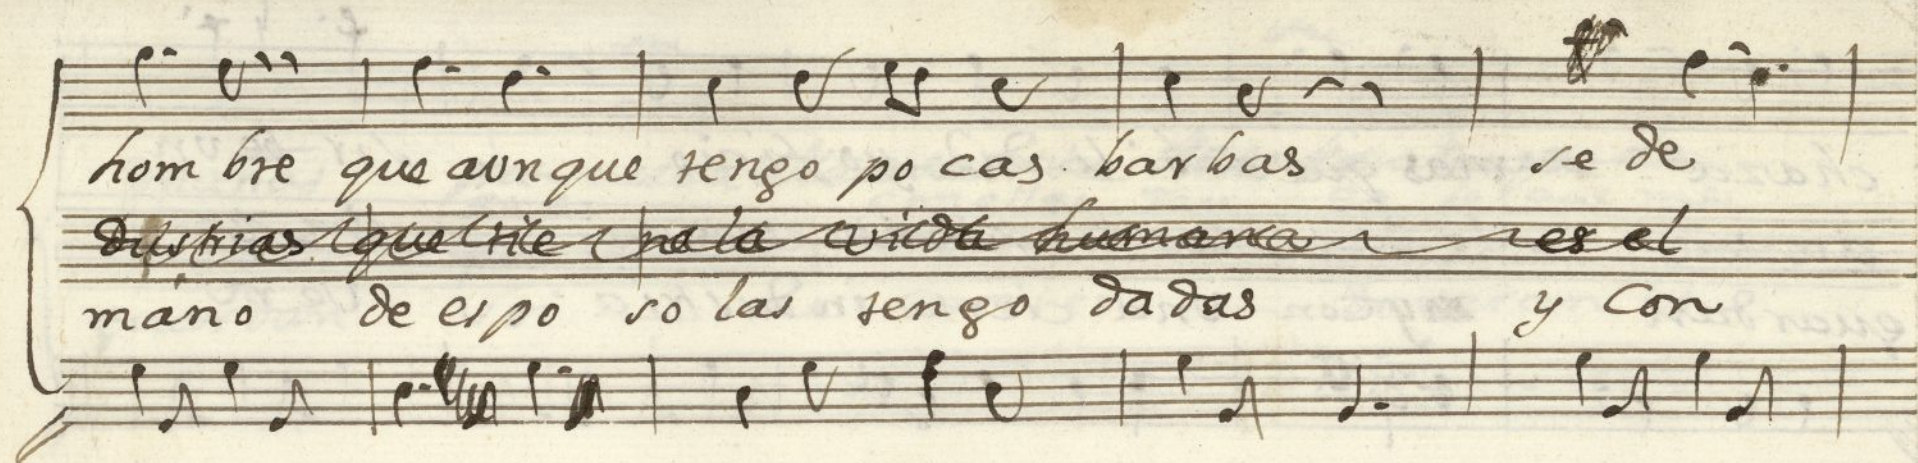 hom bre que aun que tengo po cas barbas se de
dustrias que tie ne la vida humana es el
máno de espo so las tengo dadas y con